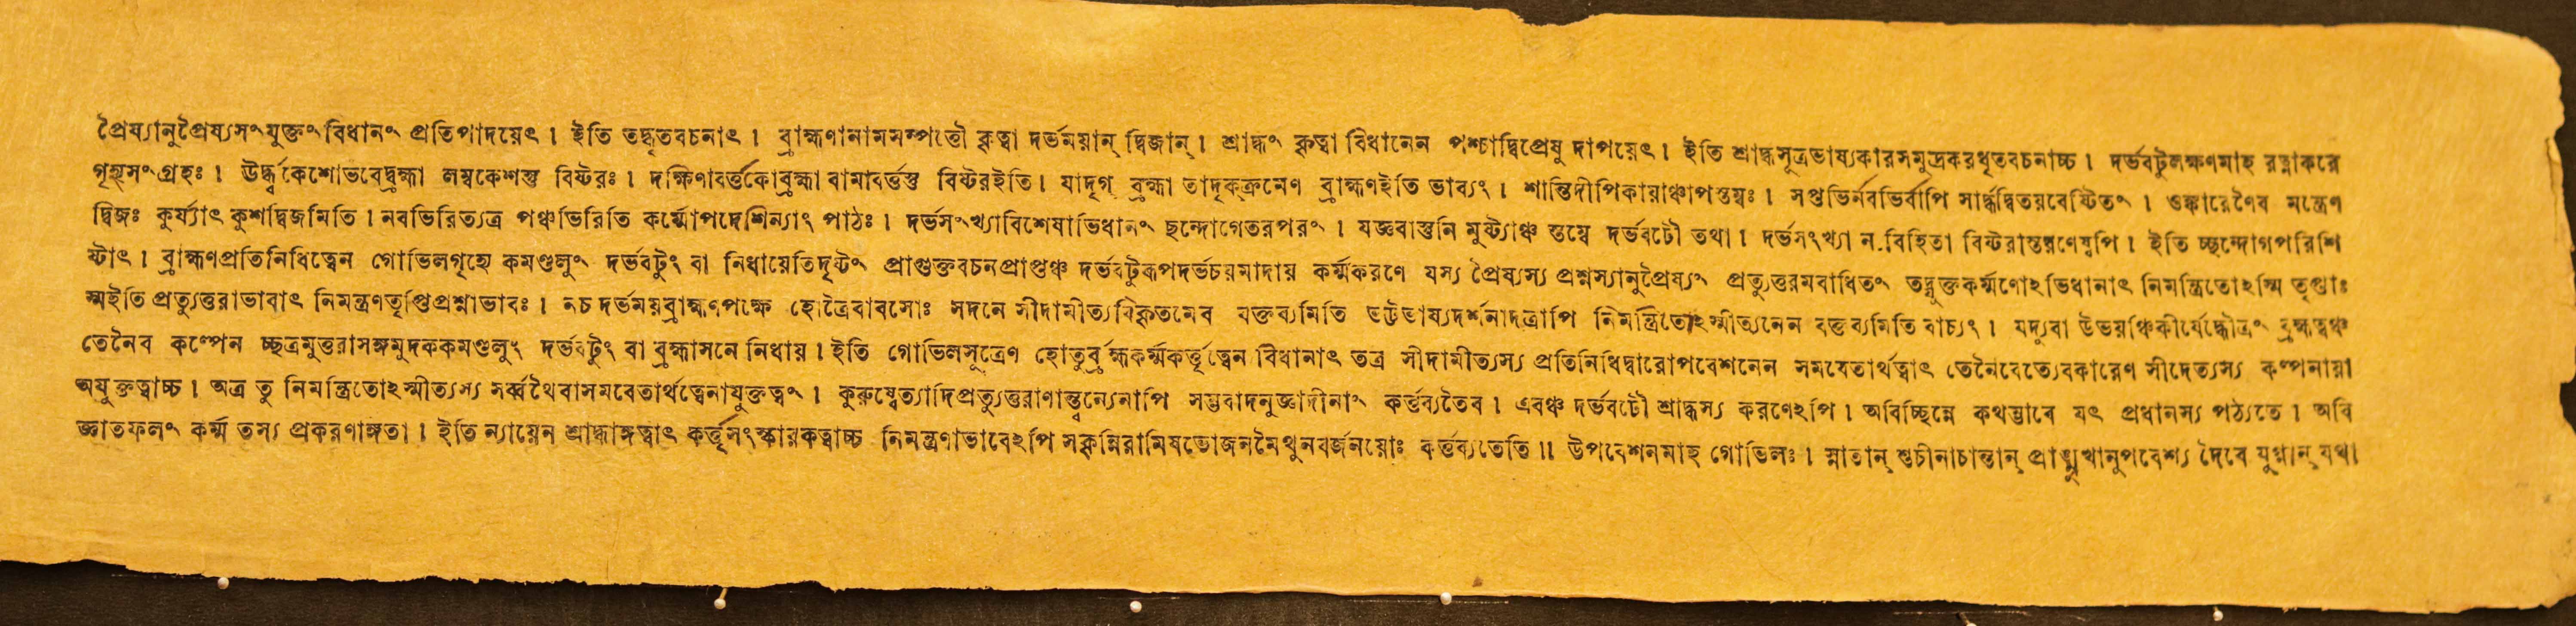 প্রৈষ্যানুপ্রৈষ্যসংযুক্তং বিধানং প্রতিপাদয়েৎ । ইতি তদ্ধৃতবচনাৎ । ব্রাহ্মণানামসম্পত্তৌ কৃত্বা দর্ভময়ান্ দ্বিজান্ । শ্রাদ্ধং কৃত্বা বিধানেন পশ্চাদ্বিপ্রেষু দাপয়েৎ । ইতি শ্রাদ্ধসূত্রভাষ্যকারসমুদ্রকরধৃতবচনাচ্চ । দর্ভবটুলক্ষণমাহ রত্নাকরে
গৃহ্যসংগ্রহঃ । ঊর্দ্ধ্বকেশোভবেদ্ব্রহ্মা লম্বকেশস্তু বিষ্টরঃ । দক্ষিণাবর্ত্তকোব্রহ্মা বামাবর্ত্তস্তু বিষ্টরইতি । যাদৃগ্ ব্রহ্মা তাদৃক্ক্রমেণ ব্রাহ্মণইতি ভাব্যং । শান্তিদীপিকায়াঞ্চাপস্তম্বঃ । সপ্তভির্নবভির্বাপি সার্দ্ধদ্বিতয়বেষ্টিতং । ওঙ্কারেণৈব মন্ত্রেণ
দ্বিজঃ কুর্য্যাৎ কুশদ্বিজমিতি । নবভিরিত্যত্র পঞ্চভিরিতি কর্ম্মোপদেশিন্যাং পাঠঃ । দর্ভসংখ্যাবিশেষাভিধানং ছন্দোগেতরপরং । যজ্ঞবাস্তুনি মুষ্ট্যাঞ্চ স্তম্বে দর্ভবটৌ তথা । দর্ভসংখ্যা ন বিহিতা বিষ্টরাস্তরণেষ্বপি । ইতি চ্ছন্দোগপরিশি
ষ্টাৎ । ব্রাহ্মণপ্রতিনিধিত্বেন গোভিলগৃহ্যে কমণ্ডলুং দর্ভবটুং বা নিধায়েতিদৃষ্টং প্রাগুক্তবচনপ্রাপ্তঞ্চ দর্ভবটুরূপদর্ভচরমাদায় কর্ম্মকরণে যস্য প্রৈষ্যস্য প্রশ্নস্যানুপ্রৈষ্যং প্রত্যুত্তরমবাধিতং তদ্যুক্তকর্ম্মণোঽভিধানাৎ নিমন্ত্রিতোঽস্মি তৃপ্তাঃ
স্মইতি প্রত্যুত্তরাভাবাৎ নিমন্ত্রণতৃপ্তিপ্রশ্নাভাবঃ । নচ দর্ভময়ব্রাহ্মণপক্ষে হোত্রৈবাবসোঃ সদনে সীদামীত্যবিকৃতমেব বক্তব্যমিতি ভট্টভাষ্যদর্শনাদত্রাপি নিমন্ত্রিতোঽস্মীত্যনেন বক্তব্যমিতি বাচ্যং । যদ্যুবা উভয়ঞ্চিকীর্ষেদ্ধৌত্রং ব্রহ্মত্বঞ্চ
তেনৈব কল্পেন চ্ছত্রমুত্তরাসঙ্গমুদককমণ্ডলুং দর্ভবটুং বা ব্রহ্মাসনে নিধায় । ইতি গোভিলসূত্রেণ হোতুর্ব্রহ্মকর্ম্মকর্ত্তৃত্বেন বিধানাৎ তত্র সীদামীত্যস্য প্রতিনিধিদ্বারোপবেশনেন সমবেতার্থত্বাৎ তেনৈবেত্যেবকারেণ সীদেত্যস্য কল্পনায়া
অযুক্তত্বাচ্চ । অত্র তু নিমন্ত্রিতোঽস্মীত্যস্য সর্ব্বথৈবাসমবেতার্থত্বেনাযুক্তত্বং । কুরুষ্বেত্যাদিপ্রত্যুত্তরাণান্ত্বন্যেনাপি সম্ভবাদনুজ্ঞাদীনাং কর্ত্তব্যতৈব । এবঞ্চ দর্ভবটৌ শ্রাদ্ধস্য করণেঽপি । অবিচ্ছিন্নে কথম্ভাবে যৎ প্রধানস্য পঠ্যতে । অবি
জ্ঞাতফলং কর্ম্ম তস্য প্রকরণাঙ্গতা । ইতি ন্যায়েন শ্রাদ্ধাঙ্গত্বাৎ কর্ত্তৃসংস্কারকত্বাচ্চ নিমন্ত্রণাভাবেঽপি সকৃন্নিরামিষভোজনমৈথুনবর্জনয়োঃ কর্ত্তব্যতেতি ॥ উপবেশনমাহ গোভিলঃ । স্নাতান্ শুচীনাচান্তান্ প্রাঙ্মুখানুপবেশ্য দৈবে যুগ্মান্ যথা